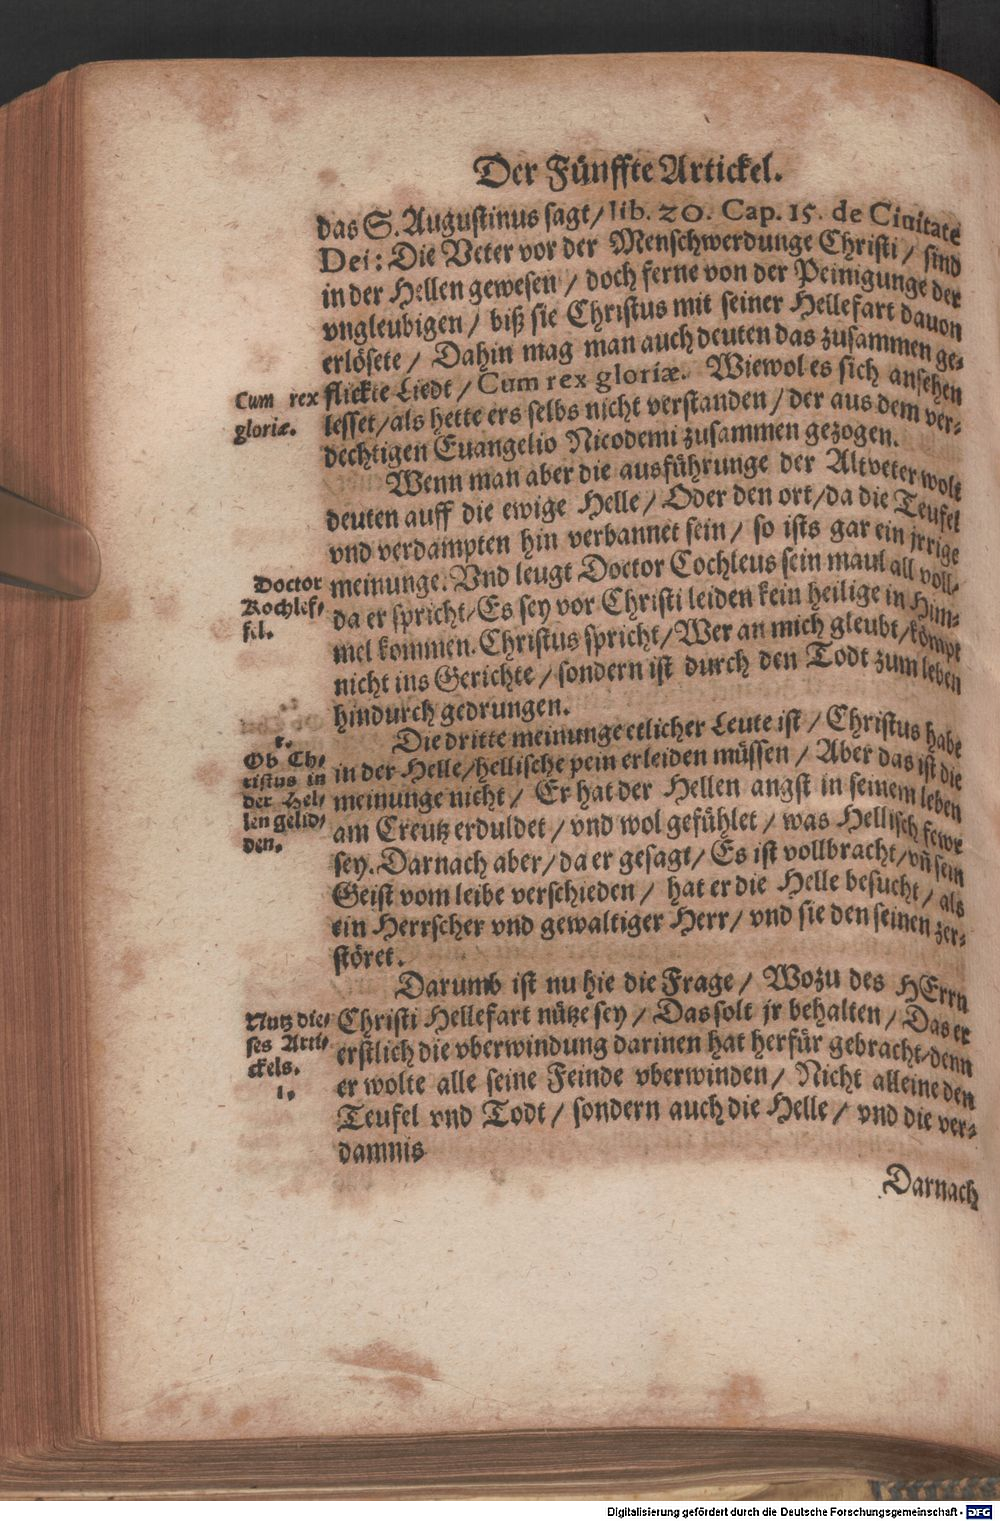 Der Fünffte Artickel.
das S. Augustinus sagt/ lib. 20. Cap. 15. de Ciuitate
Dei: Die Veter vor der Menschwerdunge Christi / sind
in der Hellen gewesen / doch ferne von der Peinigunge der
vngleubigen / biß sie Christus mit seiner Hellefart dauon
erlösete / Dahin mag man auch deuten das zusammen ge-
Cum rex
gloriæ.
flickte Liedt / Cum rex gloriæ. Wiewol es sich ansehen
lesset/als hette ers selbs nicht verstanden / der aus dem ver-
dechtigen Euangelio Nicodemi zusammen gezogen.
Wenn man aber die ausführunge der Altveter wolt
deuten auff die ewige Helle / Oder den ort/da die Teufel
vnd verdampten hin verbannet sein / so ists gar ein jrrige
Doctor
Kochlef-
fel.
meinunge. Vnd leugt Doctor Cochleus sein maul all voll-
da er spricht/Es sey vor Christi leiden kein heilige in Him-
mel kommen. Christus spricht/Wer an mich gleubt/kömpt
nicht ins Gerichte / sondern ist durch den Todt zum leben
hindurch gedrungen.
Ob Ch-
ristus in
der Hel-
len gelid-
den.
Die dritte meinunge etlicher Leute ist / Christus habe
in der Helle/hellische pein erleiden müssen / Aber das ist die
meinunge nicht / Er hat der Hellen angst in seinem leben
am Creutz erduldet / vnd wol gefühlet / was Hellisch fewr
sey. Darnach aber/da er gesagt/ Es ist vollbracht/vñ sein
Geist vom leibe verschieden / hat er die Helle besucht / als
ein Herrscher vnd gewaltiger Herr/ vnd sie den seinen zer-
störet.
Darumb ist nu hie die Frage / Wozu des HErrn
Nutz die-
ses Arti-
ckels.
1.
Christi Hellefart nütze sey / Das solt jr behalten / Das er
erstlich die vberwindung darinen hat herfür gebracht/denn
er wolte alle seine Feinde vberwinden/ Nicht alleine den
Teufel vnd Todt / sondern auch die Helle / vnd die ver-
damnis
Darnach
Digitalisierung gefördert durch die Deutsche Forschungsgemeinschaft - DFG